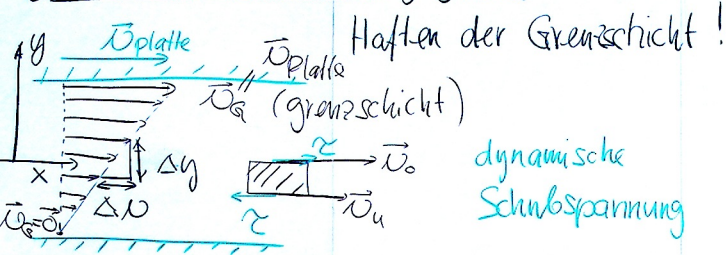 Haften der Grenzschicht !
y
v⃗platte
v⃗Platte
v⃗G (grenzschicht)
x
Δy
Δv
v⃗G=0⃗
τ
v⃗o
τ
v⃗u
dynamische
Schubspannung